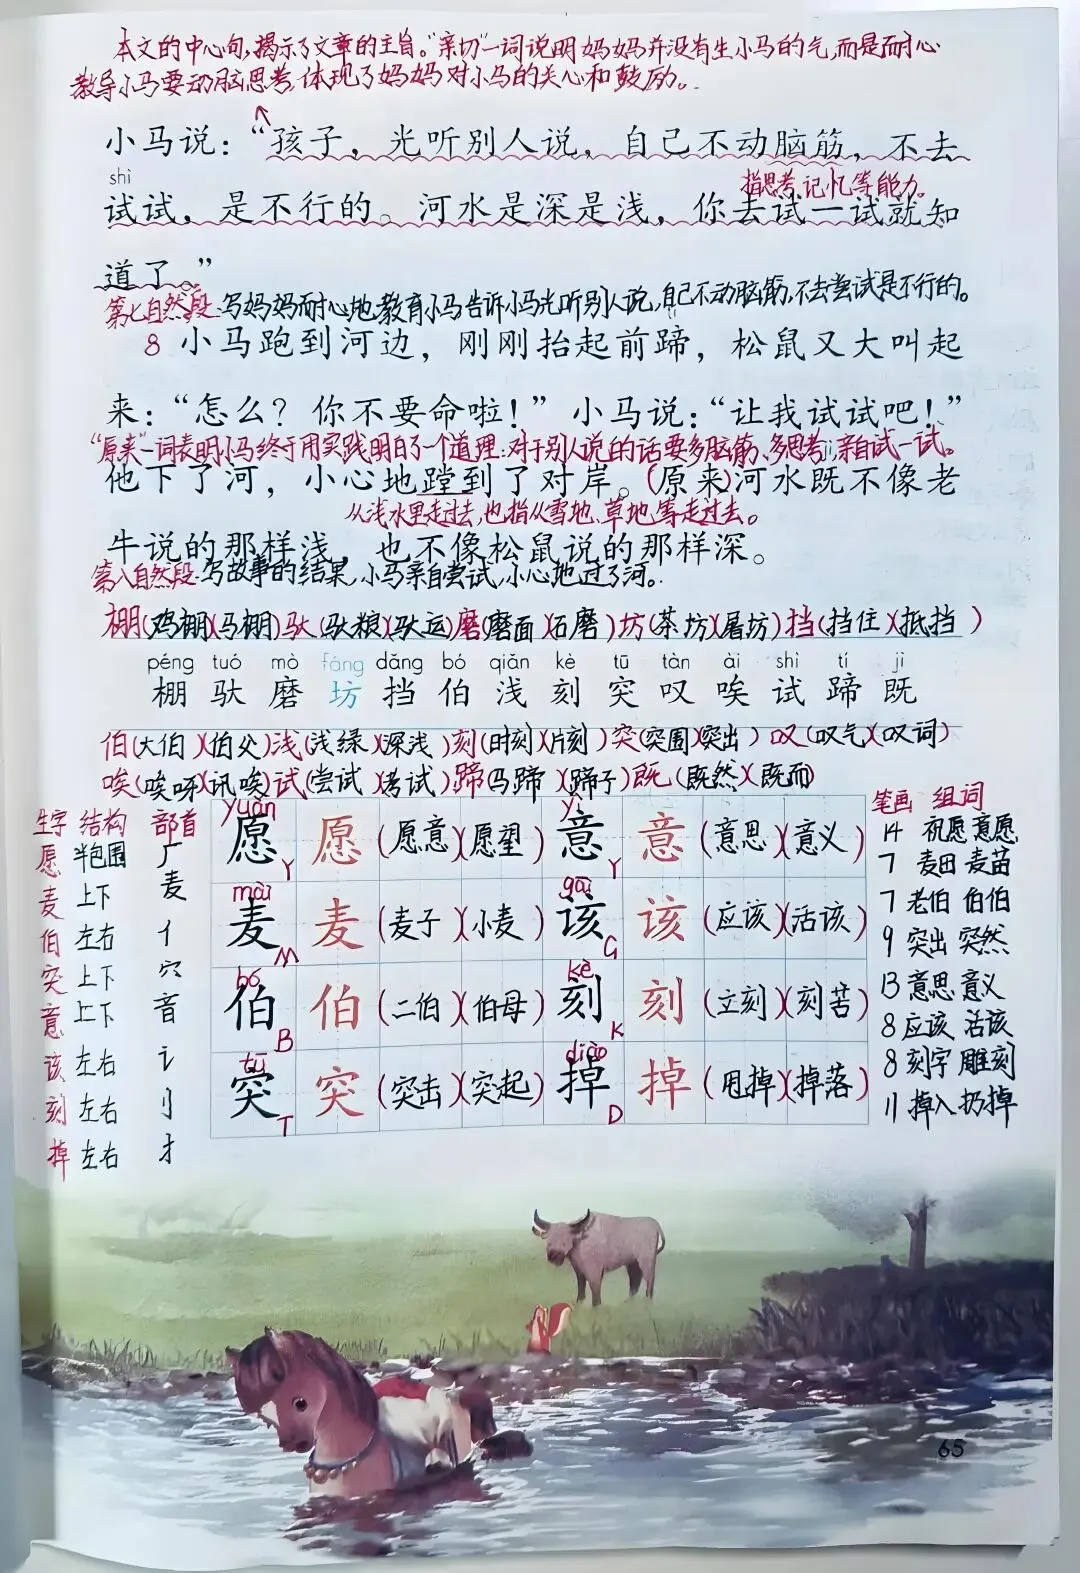 本文的中心句,揭示了文章的主旨。“亲切”一词说明妈妈并没有生小马的气,而是耐心
教导小马要动脑思考,体现了妈妈对小马的关心和鼓励。
小马说：“孩子，光听别人说，自己不动脑筋，不去
shì
指思考、记忆等能力。
试试，是不行的。河水是深是浅，你去试一试就知
道了。”
第七自然段:写妈妈耐心地教育小马告诉小马光听别人说,自己不动脑筋,不去尝试是不行的。
8 小马跑到河边，刚刚抬起前蹄，松鼠又大叫起
来：“怎么？你不要命啦！”小马说：“让我试试吧！”
“原来”一词表明小马终于用实践明白了一个道理:对于别人说的话要多脑筋、多思考,亲自试一试。
他下了河，小心地蹚到了对岸。(原来)河水既不像老
从浅水里走过去,也指从雪地、草地等走过去。
牛说的那样浅，也不像松鼠说的那样深。
第八自然段:写故事的结果,小马亲自尝试,小心地过了河。
棚(鸡棚)(马棚)驮(驮粮)(驮运)磨(磨面)(石磨)坊(茶坊)(屠坊)挡(挡住)(抵挡)
péng tuó mò fáng dǎng bó qiǎn kè tū tàn ài shì tí jì
棚 驮 磨 坊 挡 伯 浅 刻 突 叹 唉 试 蹄 既
伯(大伯)(伯父)浅(浅绿)(深浅)刻(时刻)(片刻)突(突围)(突出)叹(叹气)(叹词)
唉(唉呀)(讯唉)试(尝试)(考试)蹄(马蹄)(蹄子)既(既然)(既而)
生字 结构 部首 yuàn yì 笔画 组词
愿 半包围 厂 愿 Y 愿 (愿意)(愿望) 意 Y 意 (意思)(意义) 14 祝愿 意愿
mài gāi
麦 上下 麦 麦 M 麦 (麦子)(小麦) 该 G 该 (应该)(活该) 7 麦田 麦苗
伯 左右 亻 bó kè 7 老伯 伯伯
突 上下 穴 伯 B 伯 (二伯)(伯母) 刻 K 刻 (立刻)(刻苦) 9 突出 突然
意 上下 音 13 意思 意义
该 左右 讠 tū diào 8 应该 活该
刻 左右 刂 突 T 突 (突击)(突起) 掉 D 掉 (甩掉)(掉落) 8 刻字 雕刻
掉 左右 扌 11 掉入 扔掉
65